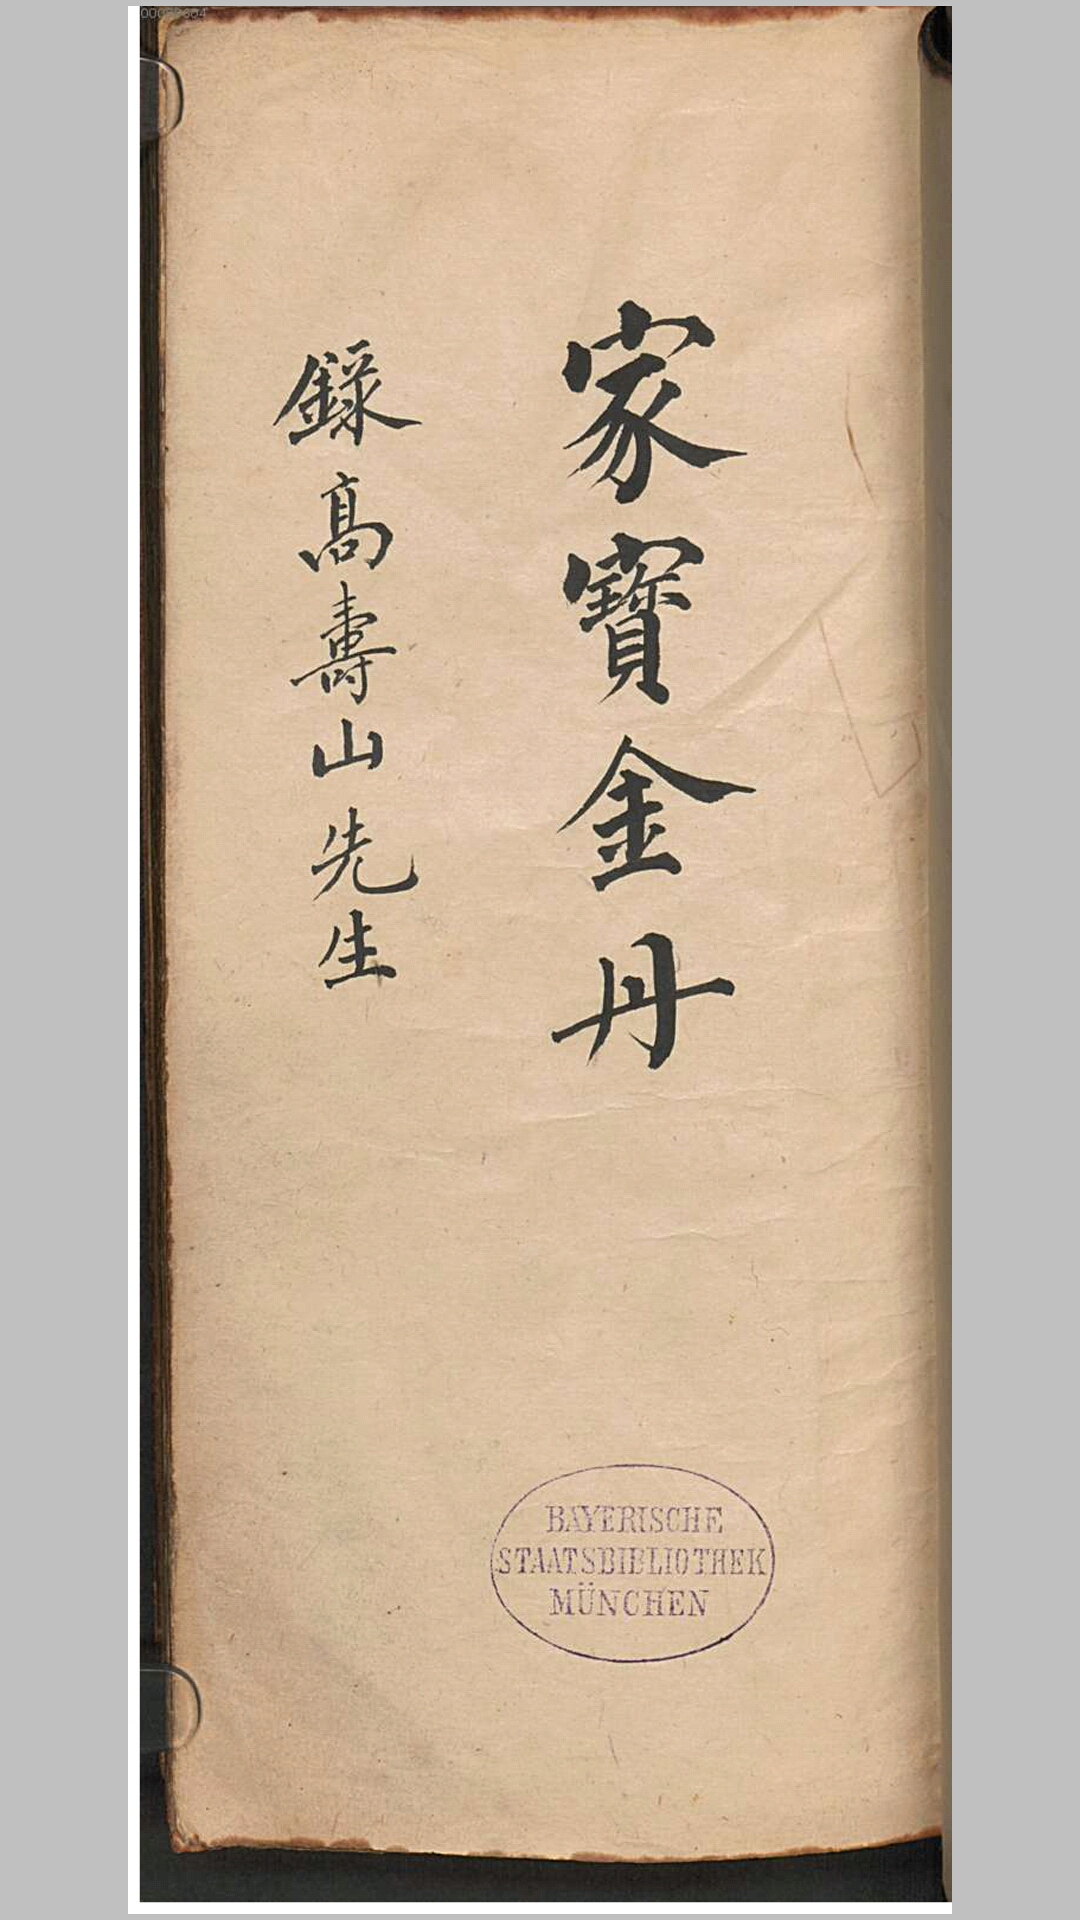 家寶金丹
錄高壽山先生
BAYERISCHE
STAATSBIBLIOTHEK
MÜNCHEN